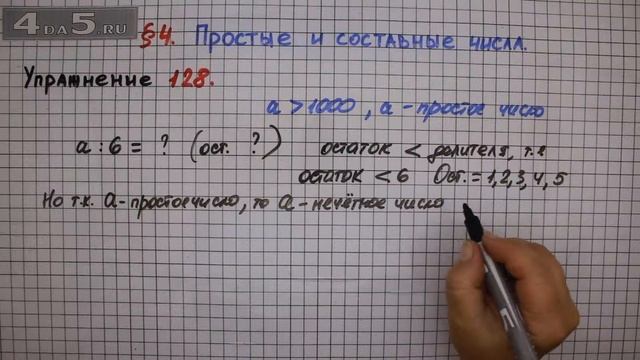 4DA5.RU
§4. Простые и составные числа.
Упражнение 128.
a > 1000, a - простое число
a : 6 = ? (ост. ?) остаток < делителя, т.е
остаток < 6 Ост. = 1, 2, 3, 4, 5
Но т.к. a - простое число, то a - нечётное число